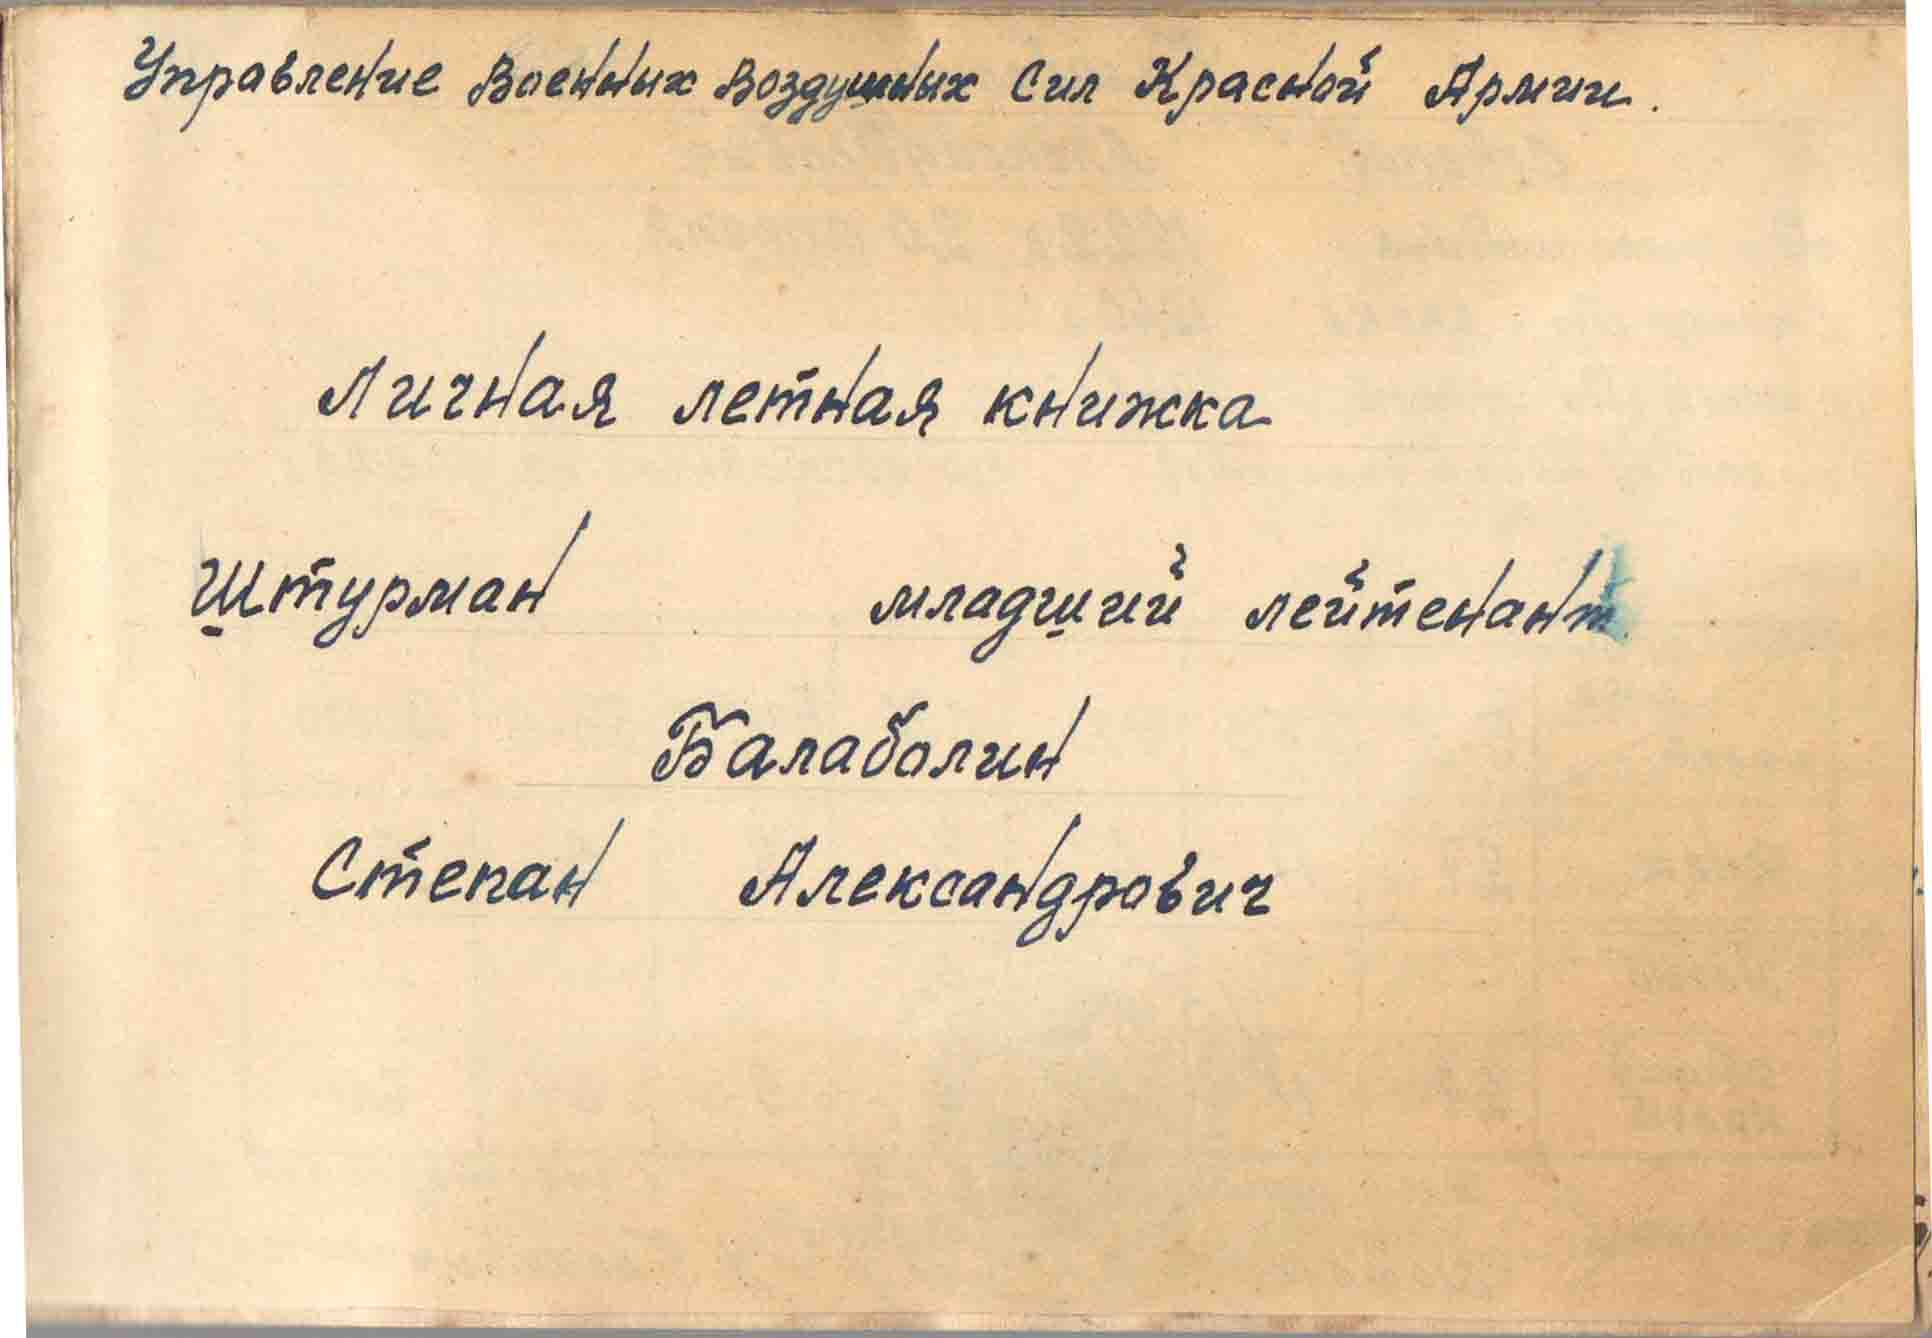 Управление Военных Воздушных Сил Красной Армии.
Личная летная книжка
Штурман младший лейтенант
Балаболин
Степан Александрович